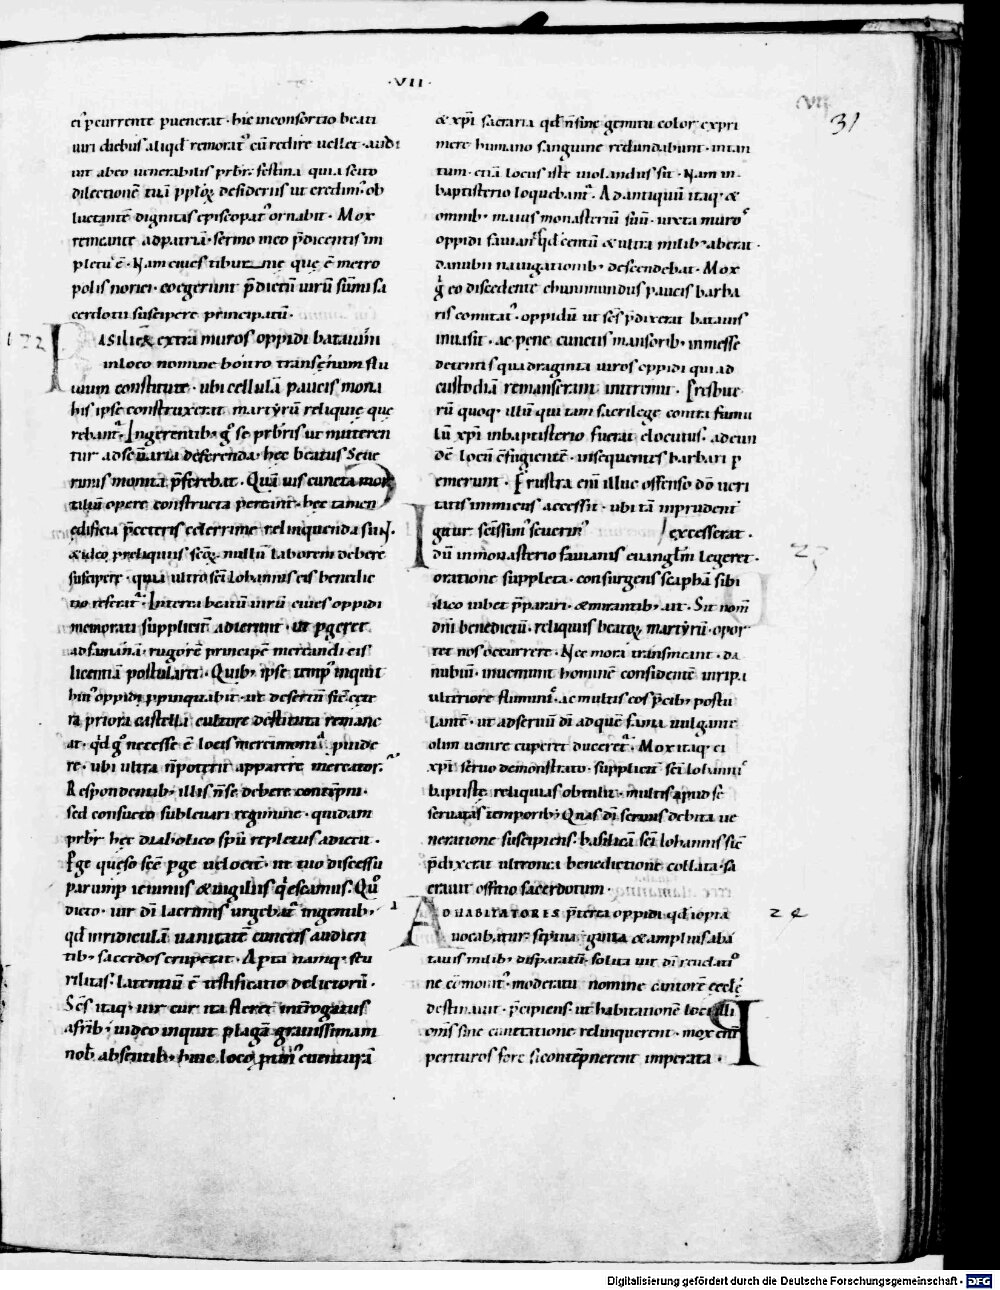 ·VII·
VII
31
ei ꝑcurrente puenerat · hic inconsortio beati
uiri diebus aliqđ remorat᷒ cū redire uellet · audi
uit abeo uenerabilis prbr̄ · festina quia scito
dilectionē tuā ppl̄oꝝ desideriis ut credim᷒ ob
luctantē dignitas episcopat᷒ ornabit · Mox
remeante adpatriā · sermo ineo p̄dicentis im
pletus ē · Nam ciues tiburnię que ē metro
polis norici · coegerunt p̄dictū uirū sūmi sa
cerdotii suscipere principatū ·
122
BASILICĘ extra muros oppidi batauini
inloco nomine boitro trans enum flu
uium constitute · ubi cellulā paucis mona
chis ipse construxerat martyrū reliquię quę
rebant᷒ · Ingerentib; g̊ se prbr̄is ut mitteren
tur adseūaria deferenda · hec beatus Seue
rinus monita p̄ferebat · Quā uis cuncta mor
taliū opere constructa pereant · hec tamen
edificia p̄ceteris celerrime relinquenda sunt ·
& ideo p reliquiis scōꝝ nullū laborem debere
suscipere · quia ultro scī Iohannis eis benedic
tio referat᷒ · Interea beatū uirū ciues oppidi
memorati suppliciter adierunt · ut pgeret
ad fauianā · rugorē principē mercandi eis
licentiā postularet · Quib; ipse temp᷒ inquit
hui᷒ oppidi ppinquabit · ut desertū sic cete
ra priora castella cultore destituta remane
at · qđ g̊ necesse ē locis mercimonia puide
re · ubi ultra n̄ poterit apparere mercator ·
Respondentib; illis n̄ se debere contēpni ·
sed consueto subleuari regimine · quidam
prbr̄ hec diabolico sp̄u repletus adiecit ·
Ꝑge queso scē pge uelocit᷒ · ut tuo discessu
parump̄ ieiuniis & uigiliis q̇escamus · Quo
dicto · uir dī lacrimis urgebat᷒ ingentib; ·
qđ inridiculā uanitatē cunctis audien
tib; sacerdos erupeat · Aꝑta namq; scu
rilitas · latentiū ē testificatio delictorū ·
Scs̄ itaq; uir cur ita fleret interrogatus
afrīb; · uideo inquit plagā grauissimam
nob̄ absentib; huic loco ꝓtin᷒ euenturā
& xp̄i sacraria qđ n̄ sine gemitu color expri
mere humano sanguine redundabunt · intan
tum · etiā locus iste uiolandus sit · Nam in
baptisterio loquebant᷒ · Ad antiquū itaq; &
omnib; maius monasteriū suū · iuxta muros
oppidi fauianis qđ centū & ultra milib; aberat ·
danubii nauigationib; descendebat · Mox
g̊ eo discedente chunimundus paucis barba
ris comitat᷒ · oppidū ut scs̄ p̄dixerat batauis
inuasit · ac pene cunctis mansorib; inmesse
detentis quadraginta uiros oppidi qui ad
custodiā remanserant interemit · Presbite
rū quoq; illū qui tam sacrilege contra famu
lū xp̄i inbaptisterio fuerat elocutus · ad eun
dē locū cfugientē · insequentes barbari p
emerunt · Frustra enī illuc offenso dō ueri
tatis inimicus accessit · ubi tā inprudent᷒
Igitur scīssim᷒ seuerin᷒ excesserat ·
dū inmonasterio fauianis euanglm̄ legeret ·
23
oratione suppleta · consurgens scaphā sibi
ilico iubet p̄parari · & mirantib; ait · Sit nom̄
dnī benedictū · reliquiis beatoꝝ martyrū · opor
tet nos occurrere · Nec mora transmeant · da
nubiū · inueniunt hominē considentē inripa
ulteriore fluminis · ac multis eos p̄cib; postu
lantē · ut ad seruū dī ad quē fama uulgante
olim uenire cuperet duceret᷒ · Mox itaq; ei
xp̄i seruo demonstrato · suppliciter scī Iohannis
baptiste reliquias obtulit · multis apud se
seruatas temporib; · Quas dī seruus debita ue
neratione suscipiens · basilicā scī Iohannis sic
p̄dixerat ultronea benedictione collata · sa
crauit offitio sacerdotum ·
24
AD HABITATORES p̄terea oppidi qđ iopia
uocabatur · septua ginta & amplius abat
tauis milib; disparatū · solita uir dī reuelatio
ne cōmonit᷒ · moderatū nomine cantorē ecclę
destinauit · p̄cipiens · ut habitationē loci illi
om̄s sine cunctatione relinquerent · mox eni
perituros fore si contēpnerent imperata ·
Digitalisierung gefördert durch die Deutsche Forschungsgemeinschaft · DFG